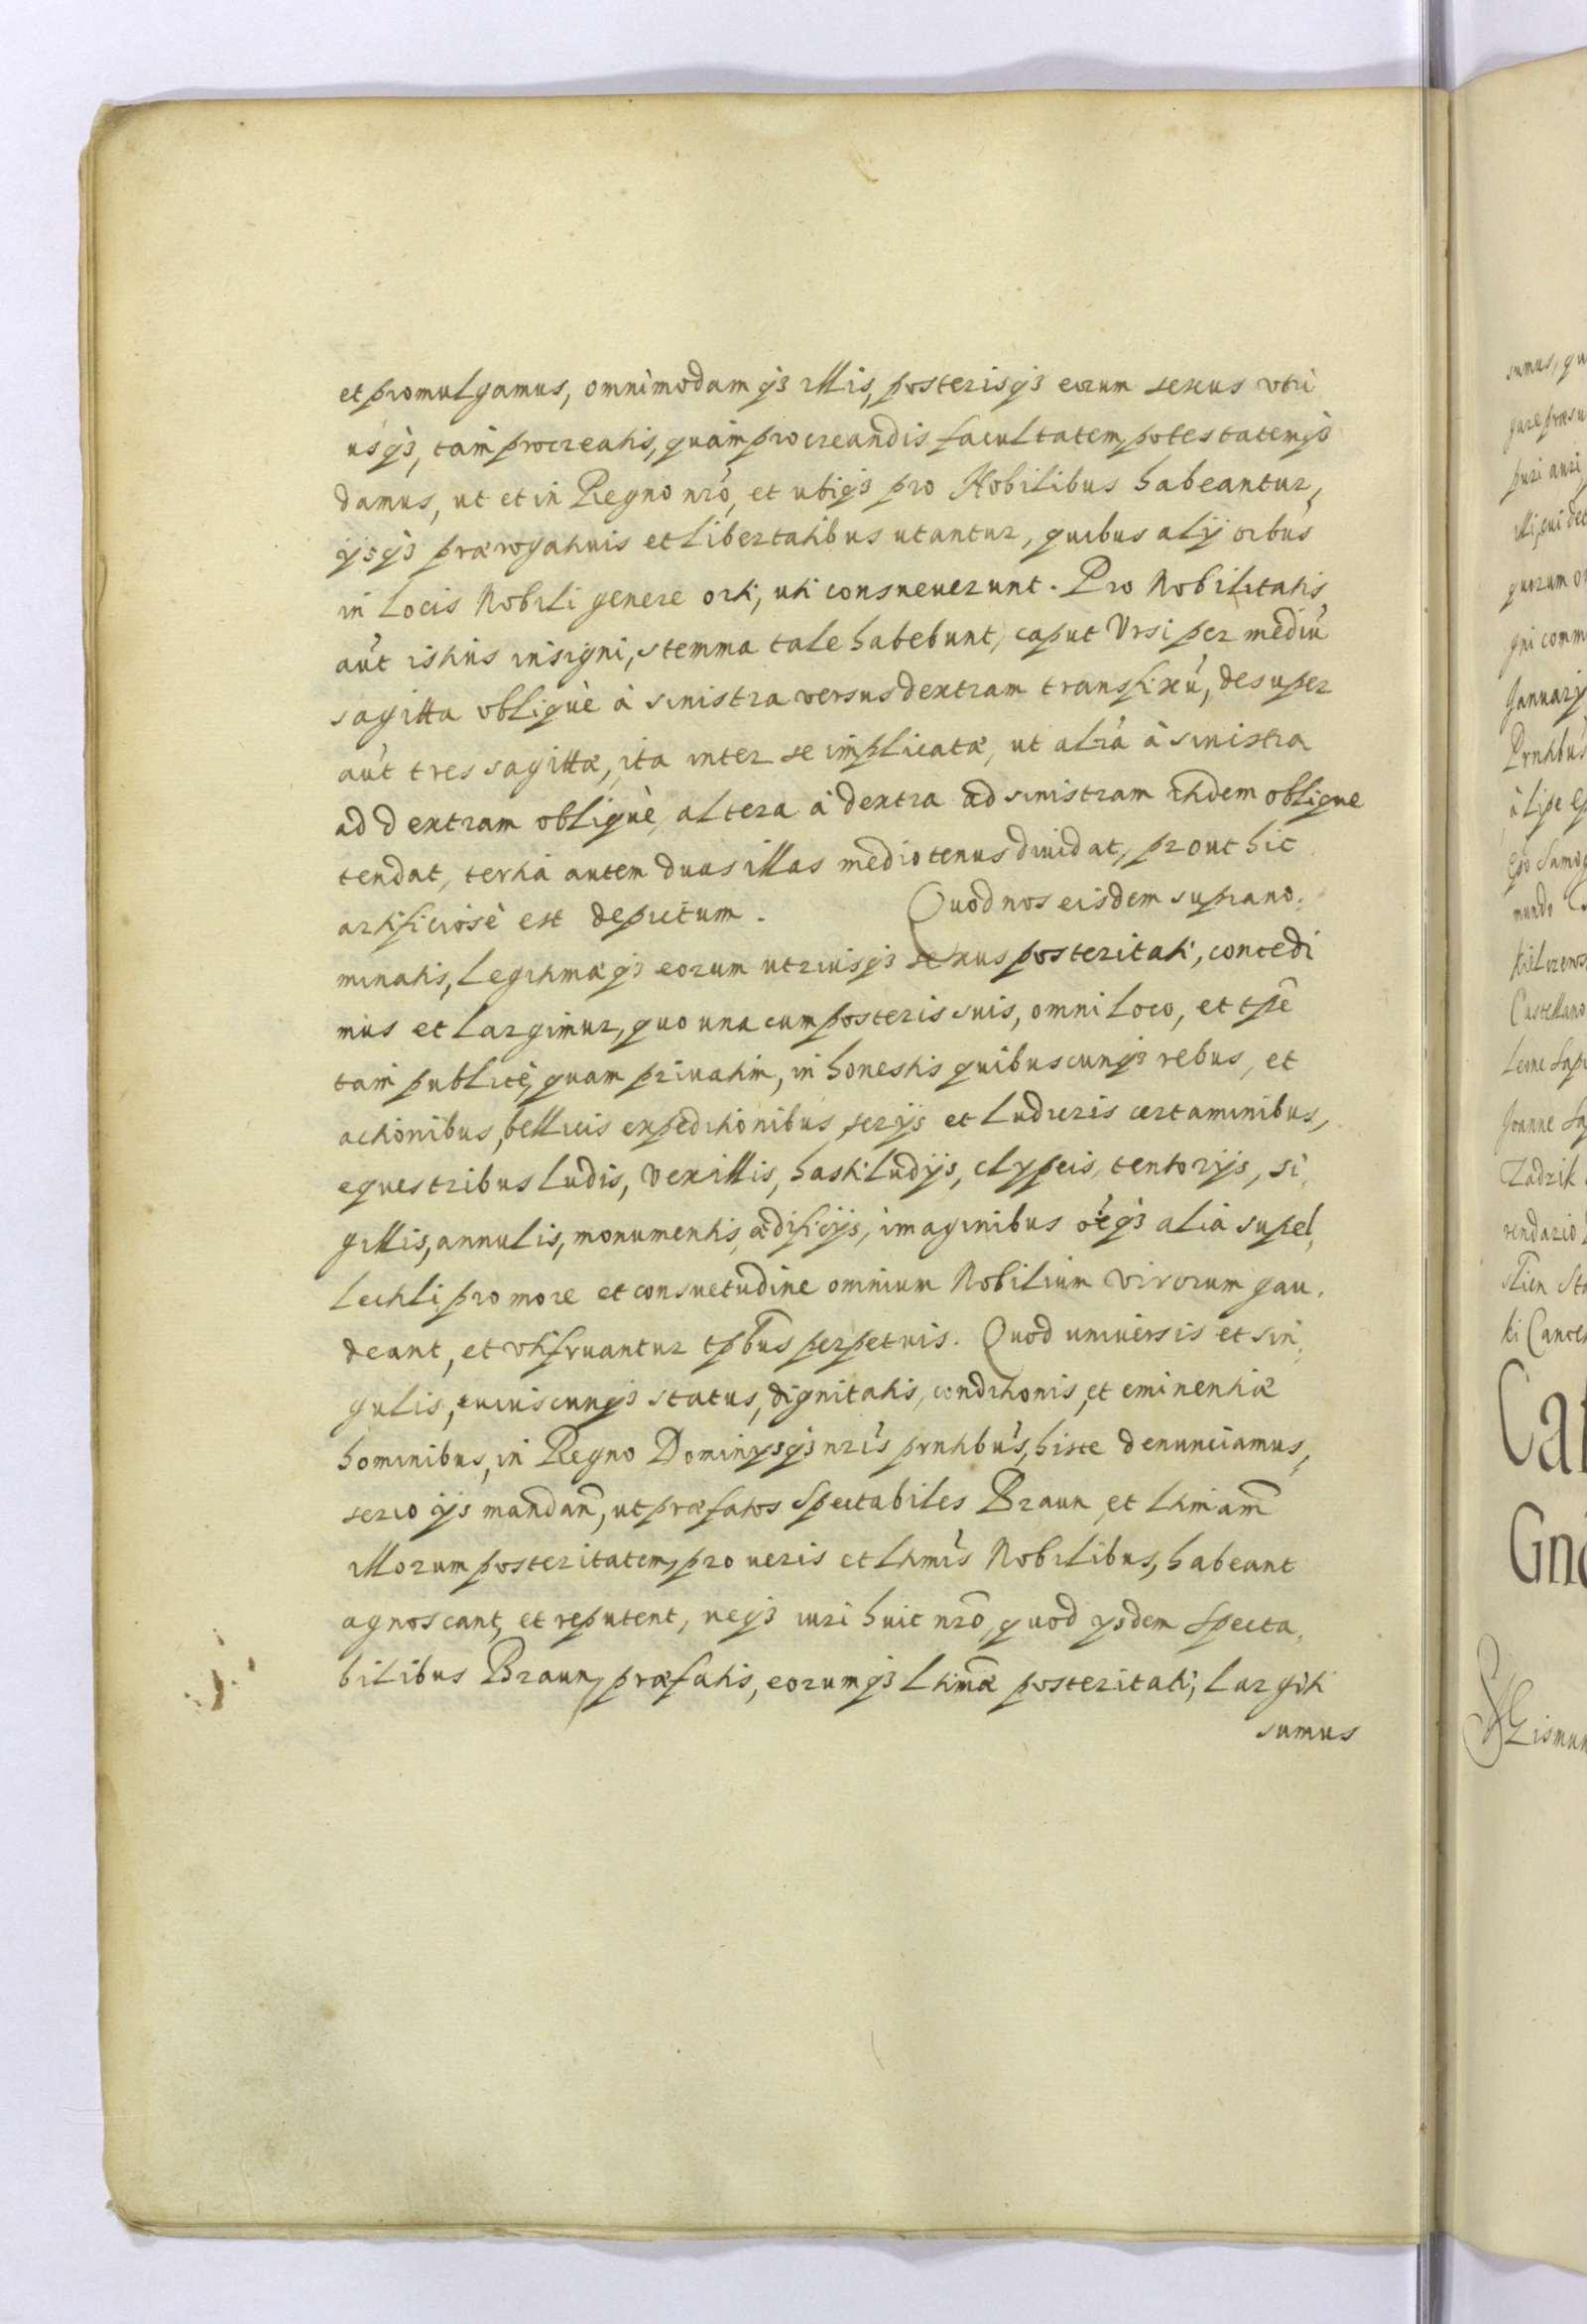 et promulgamus, omnimodamq3 illis, posterisq3 eorum sexus vtri
usq3, tam procreatis, quam procreandis facultatem, potestatemq3
damus, ut et in Regno nro, et ubiq3 pro Nobilibus habeantur,
ijsq3 prærogatiuis et libertatibus utantur, quibus alij oibus
in locis Nobili genere orti, uti consueuerunt. Pro Nobilitatis
aut istius insigni, stemma tale habebunt, caput Vrsi per mediu
sagitta obliquè à sinistra versus dextram transfixu, desuper
aut tres sagittæ, ita inter se implicatæ, ut altra à sinistra
ad dextram obliquè, altera à dextra ad sinistram itidem oblique
tendat, tertia autem duas illas mediotenus diuidat, prout hic
artificiosè est depictum. Quod nos eisdem suprano,
minatis, legitimæq3 eorum utriusq3 sexus posteritati, concedi
mus et largimur, quo una cum posteris suis, omni loco, et tpe
tam publicè, quam priuatim, in honestis quibuscunq3 rebus, et
actionibus, bellicis expeditionibus, serijs et ludicris certaminibus,
equestribus ludis, vexillis, hastiludijs, clypeis, tentorijs, si,
gillis, annulis, monumentis, ædificijs, imaginibus oieq3 alia supel,
lectili pro more et consuetudine omnium Nobilium virorum gau,
deant, et vtifruantur tpbus perpetuis. Quod uniuersis et sin,
gulis, cuiuscunq3 status, dignitatis, conditionis, et eminentiæ
hominibus, in Regno Dominijsq3 nris prntibus, hisce denunciamus,
serio ijs mandan, ut præfatos Spectabiles Braun, et ltimam
illorum posteritatem, pro ueris et ltimis Nobilibus, habeant
agnoscant, et reputent, neq3 iuri huic nro, quod ysdem Specta,
bilibus Braun, præfatis, eorumq3 ltimæ posteritati, largiti
sumus
sumus, qu
puri auri
quorum
January
Prntibus
Castellano
Joanne
Ca
Gn